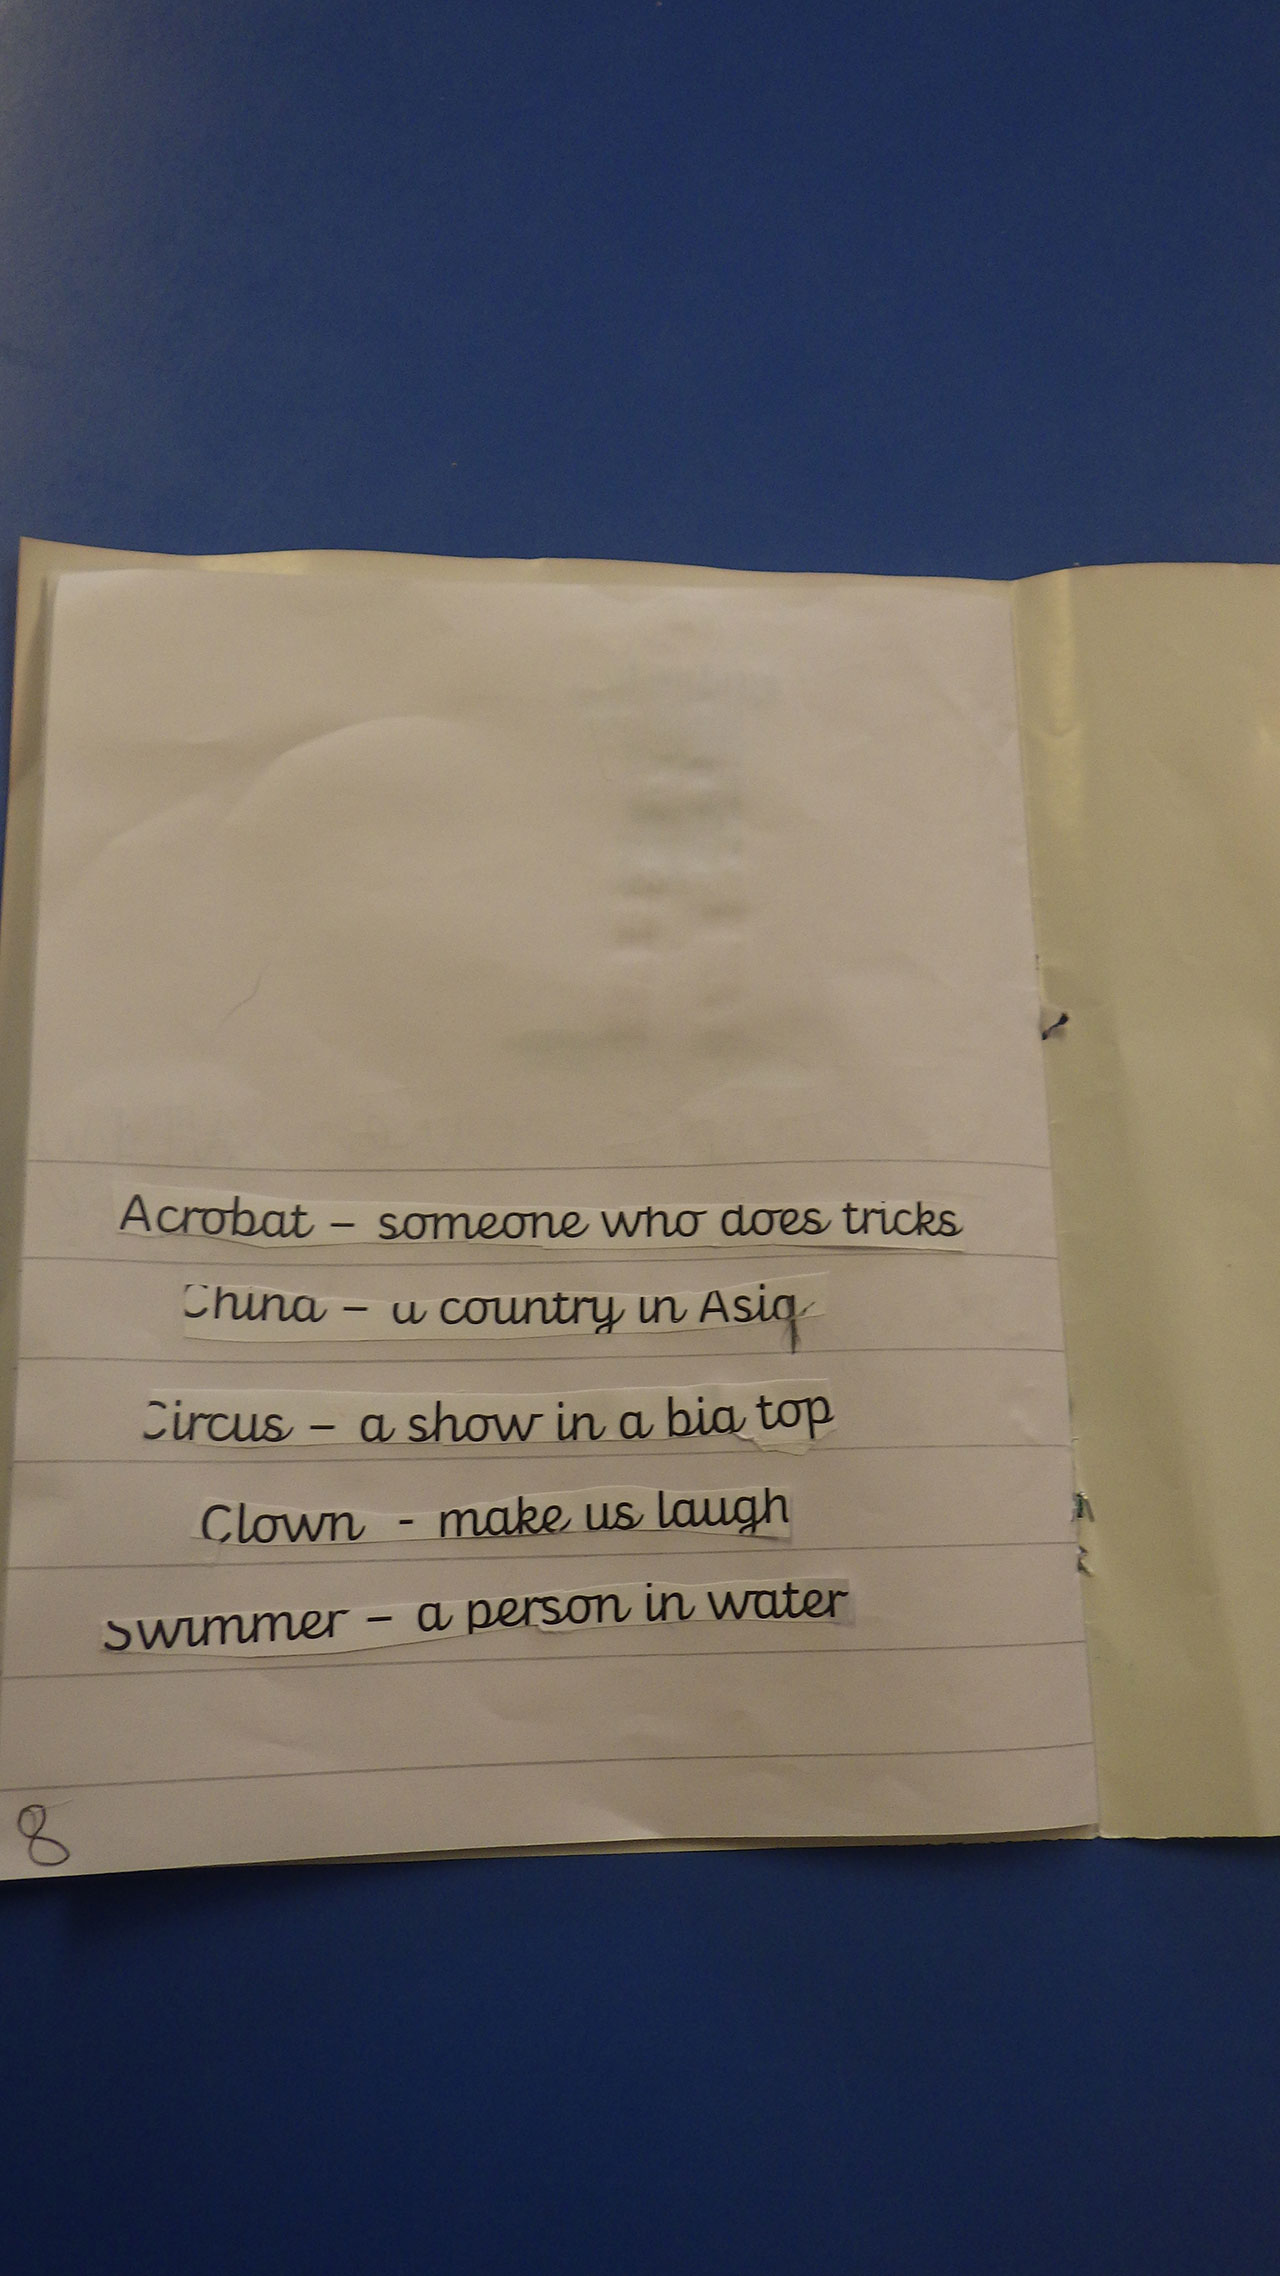 Acrobat – someone who does tricks
China – a country in Asia
Circus – a show in a big top
Clown - make us laugh
Swimmer – a person in water
8